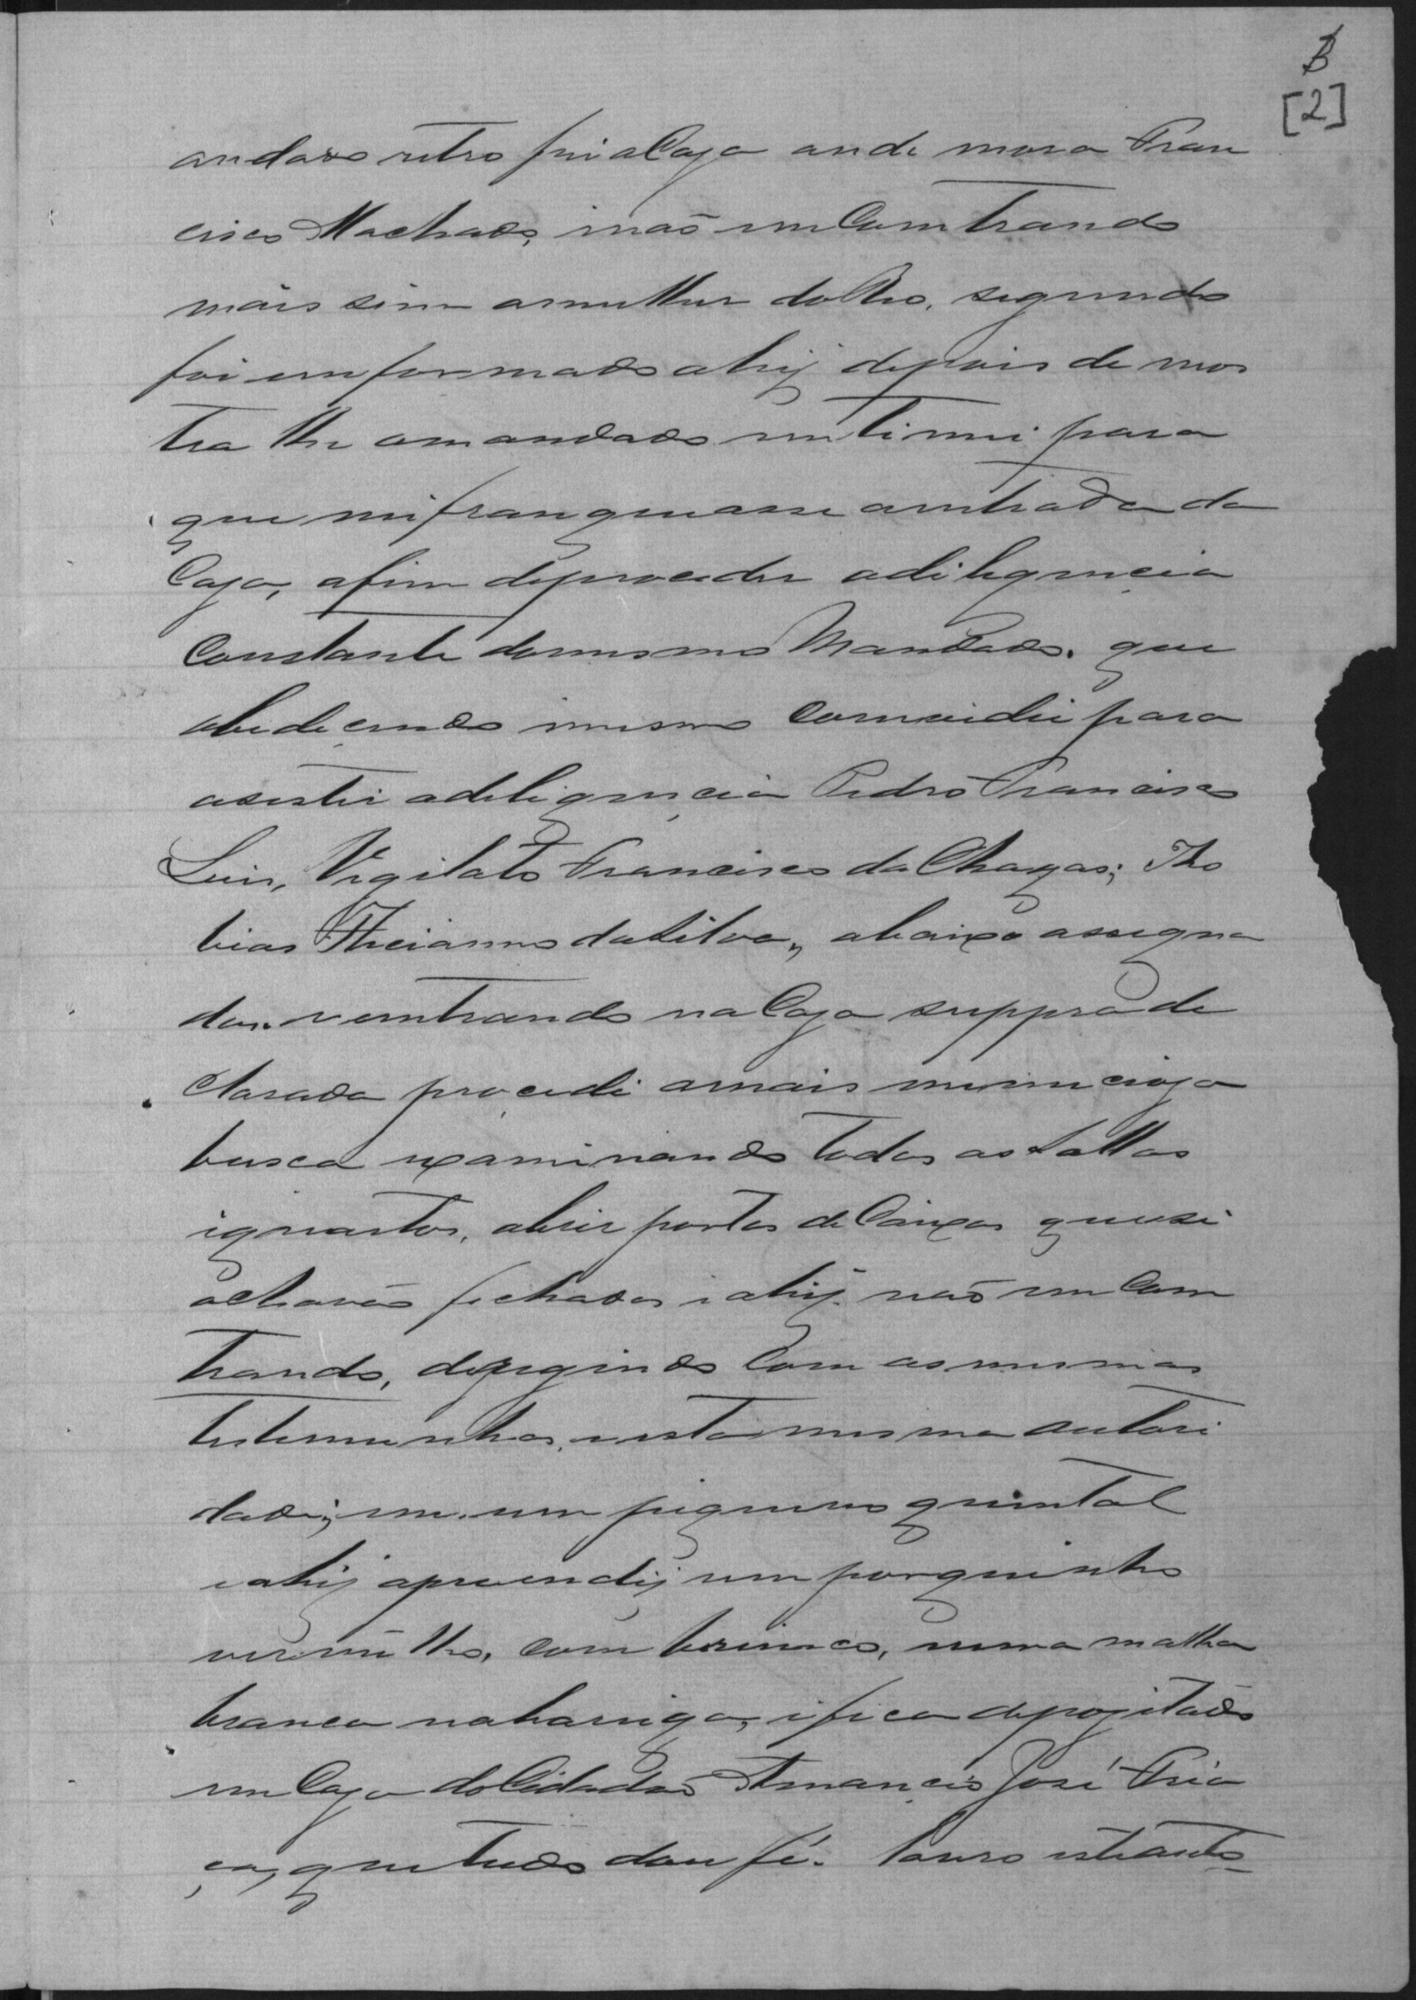 [2]
andado retro fui a Caza onde mora Fran
cisco Machado, i não em Comtrando
mais sim a mulher do Mo, segundo
foi emformado ahij depois de mos
tra lhe o mandado intimei para
que mi franqueasse a entrada da
Caza, afim de proceder a diligencia
Constante do mesmo Mandado. que
obedecendo
asestir a deligencia Pedro Francisco
Luis, Vigilato Francisco da Chagas; Tho
bias da Silva, abaixo assigna
dos. e entrando na Caza suppra de
clarada procedi a mais minucioza
busca examinando todos as sallas
i quartos, abrir portas de Caixas que si
achavão fichadas i ahij não em Com
trando, com as mesmas
testemunhas, i esta mesma autori
dadi; em um piqueno quintal
i ahij apreendij um porquinho
vermelho, com brinco, uma malha
branca na barriga, i fica depozitado
em Caza do Cidadão Amancio José Fria
ça, que tudo dou fé. Louro